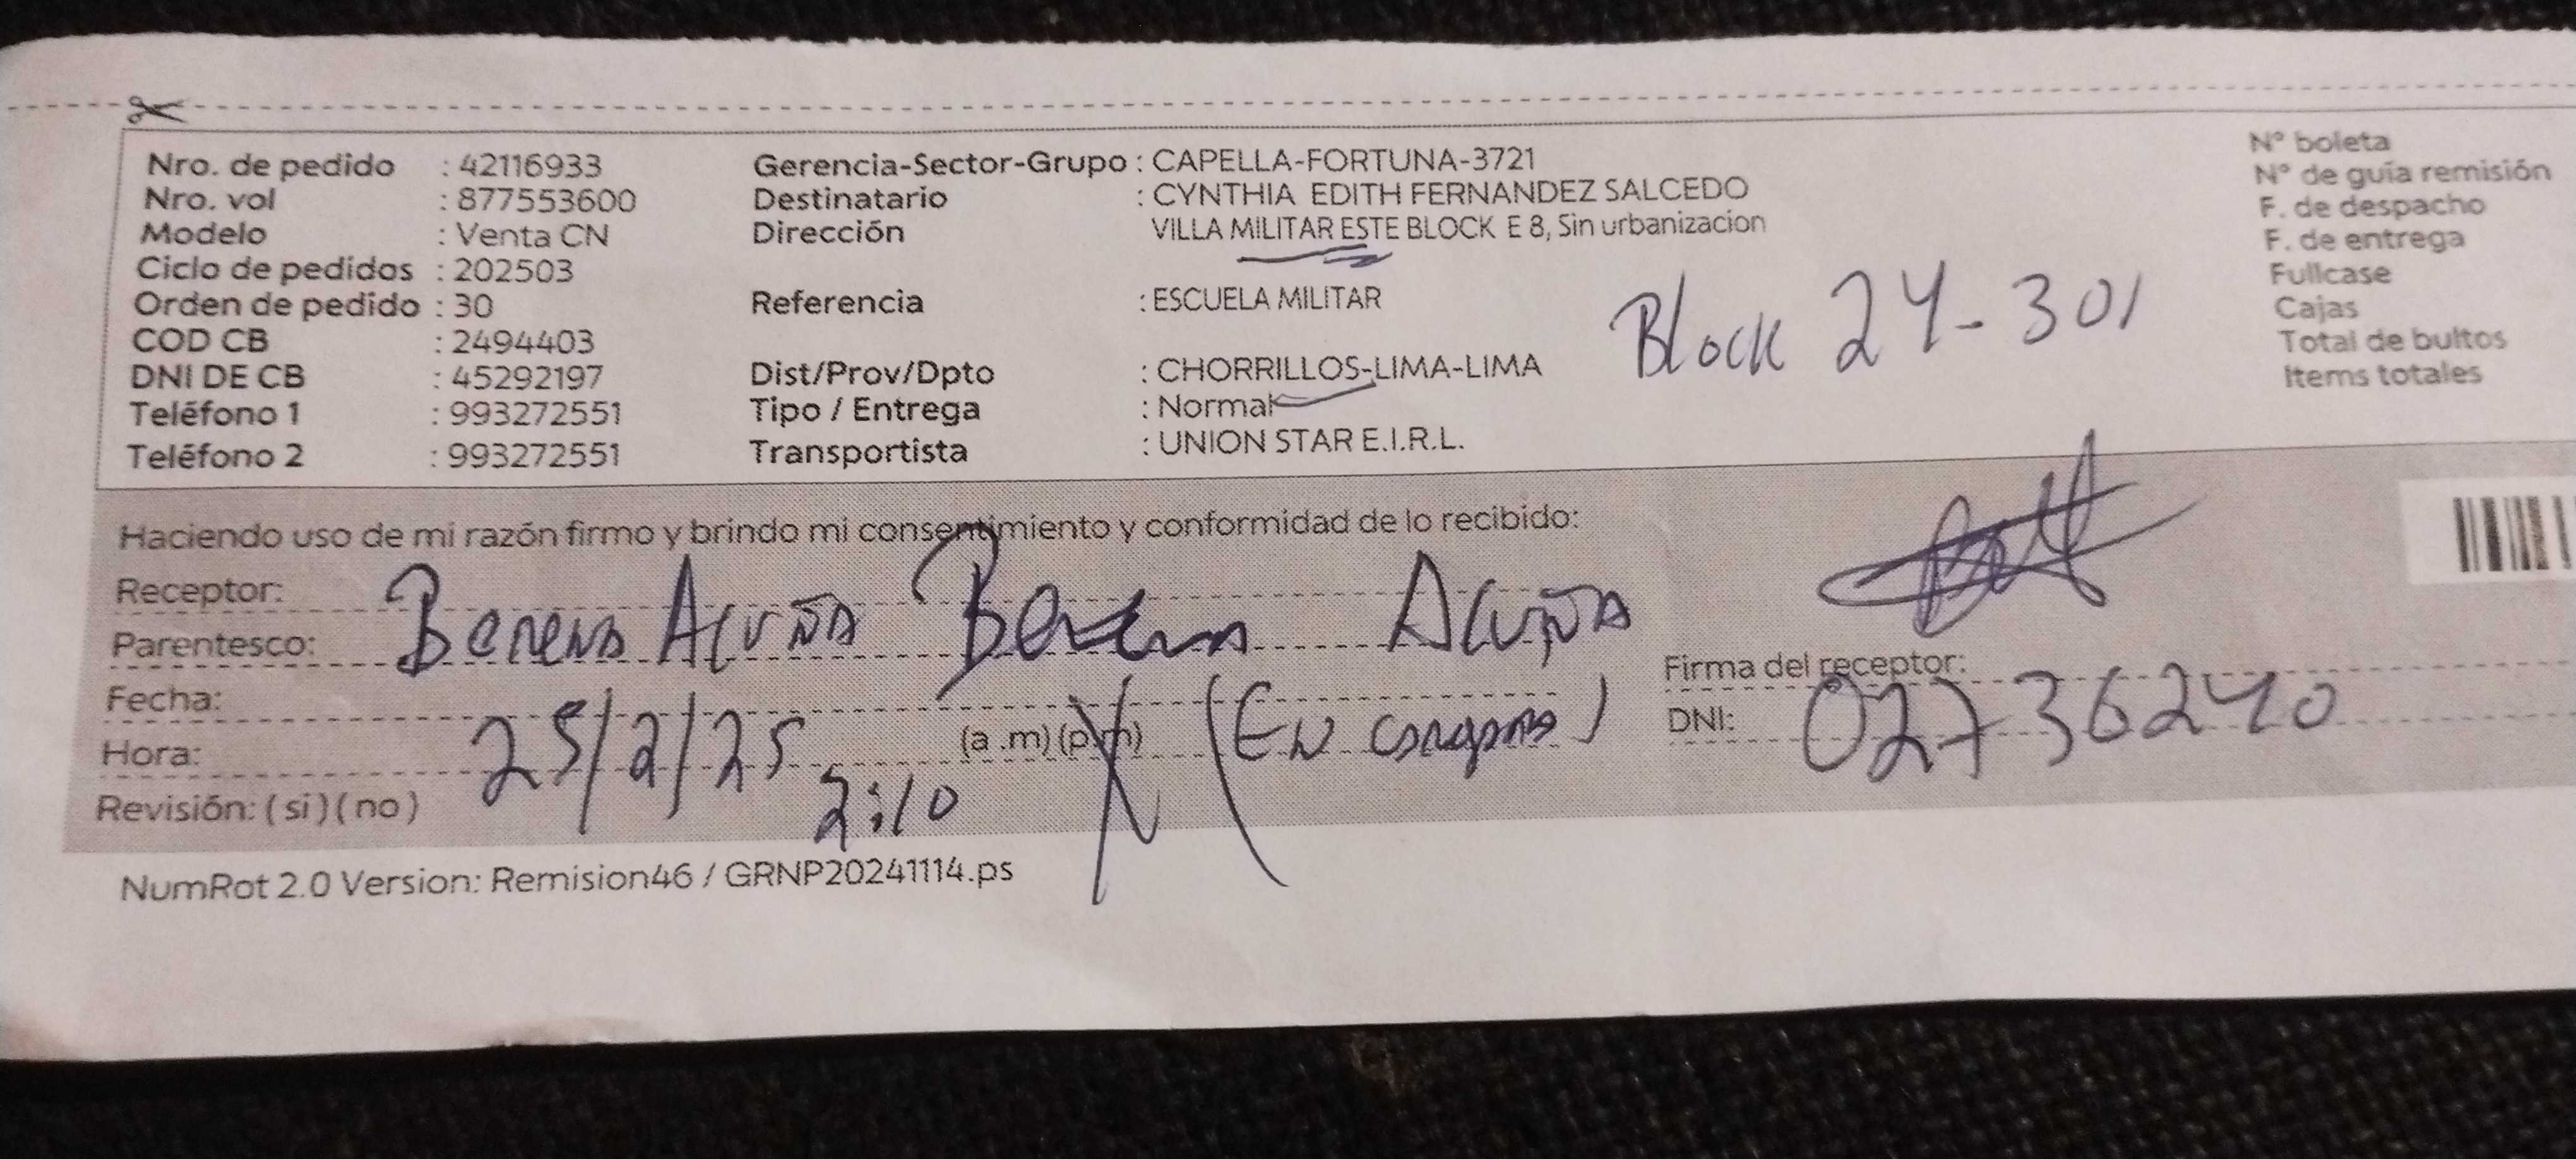 Nro. de pedido : 42116933 Gerencia-Sector-Grupo : CAPELLA-FORTUNA-3721 N° boleta
Nro. vol : 877553600 Destinatario : CYNTHIA EDITH FERNANDEZ SALCEDO N° de guía remisión
Modelo : Venta CN Dirección VILLA MILITAR ESTE BLOCK E 8, Sin urbanizacion F. de despacho
F. de entrega
Ciclo de pedidos : 202503 Fullcase
Orden de pedido : 30 Referencia : ESCUELA MILITAR Block 24-301 Cajas
COD CB : 2494403 Total de bultos
DNI DE CB : 45292197 Dist/Prov/Dpto : CHORRILLOS-LIMA-LIMA Items totales
Teléfono 1 : 993272551 Tipo / Entrega : Normal
Teléfono 2 : 993272551 Transportista : UNION STAR E.I.R.L.
Haciendo uso de mi razón firmo y brindo mi consentimiento y conformidad de lo recibido:
Receptor:
Parentesco: Acuña Acuña
Firma del receptor:
Fecha: 25/2/25
DNI: 02736240
Hora: 2:10 (a .m) (p.m) (En
Revisión: ( si ) ( no )
NumRot 2.0 Version: Remision46 / GRNP20241114.ps